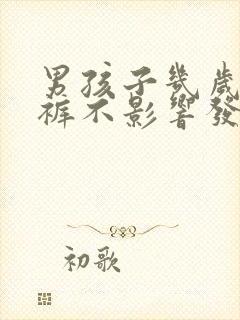 男孩子幾歲
褲不影響發
初歌